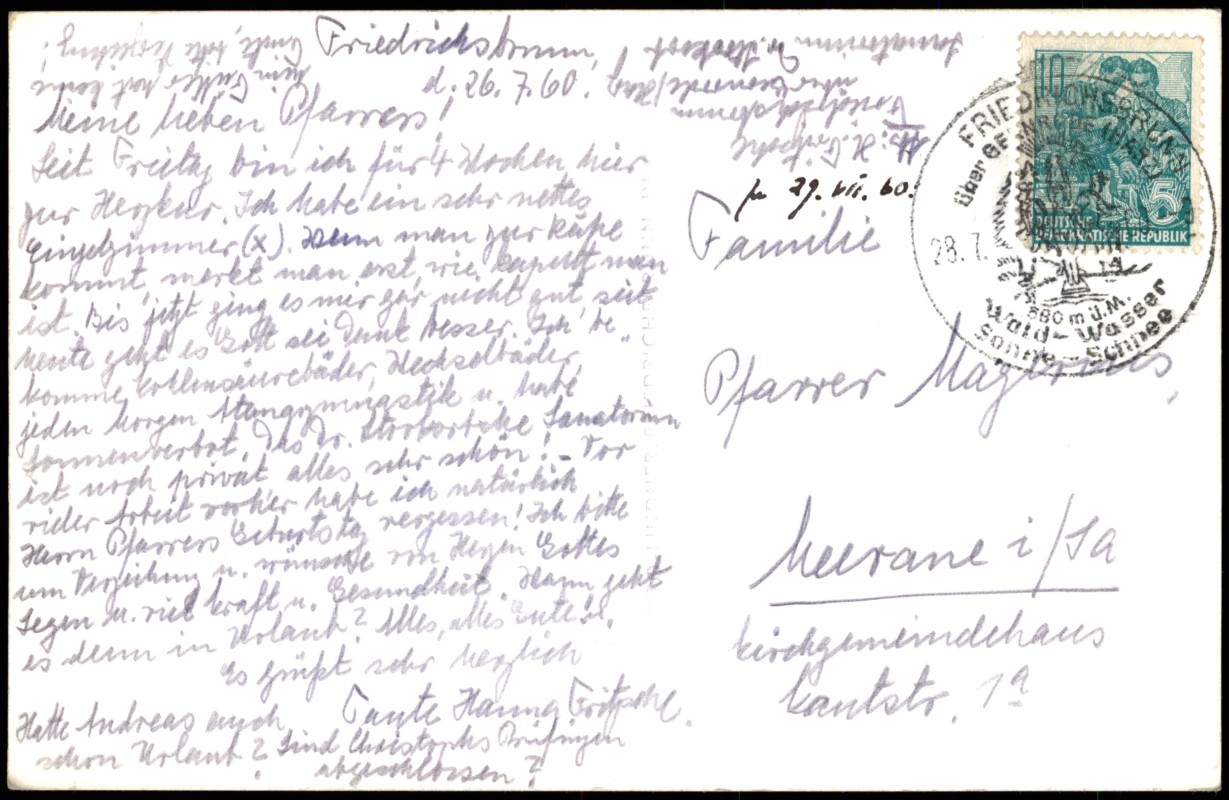 Friedrichsbrunn,
d. 26.7.60.
Meine lieben Pfarrers!
Seit Freitag bin ich für 4 Wochen hier
zur Herzkur. Ich habe ein sehr nettes
Einzelzimmer (x). Wenn man zur Ruhe
kommt, merkt man erst, wie kaputt man
ist. Bis jetzt ging es mir gar nicht gut, seit
heute geht es Gott sei Dank besser. Ich be-
komme Kohlensäurebäder, Wechselbäder,
jeden Morgen Atemgymnastik u. habe
Sonnenverbot. Das Dr. Sanatorium
ist noch privat, alles sehr schön! - Vor
vieler Arbeit vorher habe ich natürlich
Herrn Pfarrers Geburtstag vergessen! Ich bitte
um Verzeihung u. wünsche von Herzen Gottes
Segen u. viel Kraft u. Gesundheit. Wann geht
es denn in Urlaub? Alles, alles Gute!
Es grüßt sehr herzlich
Tante Hanna Fritzsche.
Hatte Andreas auch
schon Urlaub? Sind Christophs Prüfungen
abgeschlossen?
Abs: H. Fritzsche
Friedrichsbrunn
über Gernrode/Harz
Sanatorium Dr.
29. VII. 60.
Familie
Pfarrer Magirius,
Meerane i/Sa
Kirchgemeindehaus
Kantstr. 1a
10
5
DEUTSCHE
DEMOKRATISCHE REPUBLIK
FRIEDRICHSBRUNN
über GERNRODE (HARZ)
28.7.
580 m ü. M.
Wald - Wasser
Sonne - Schnee